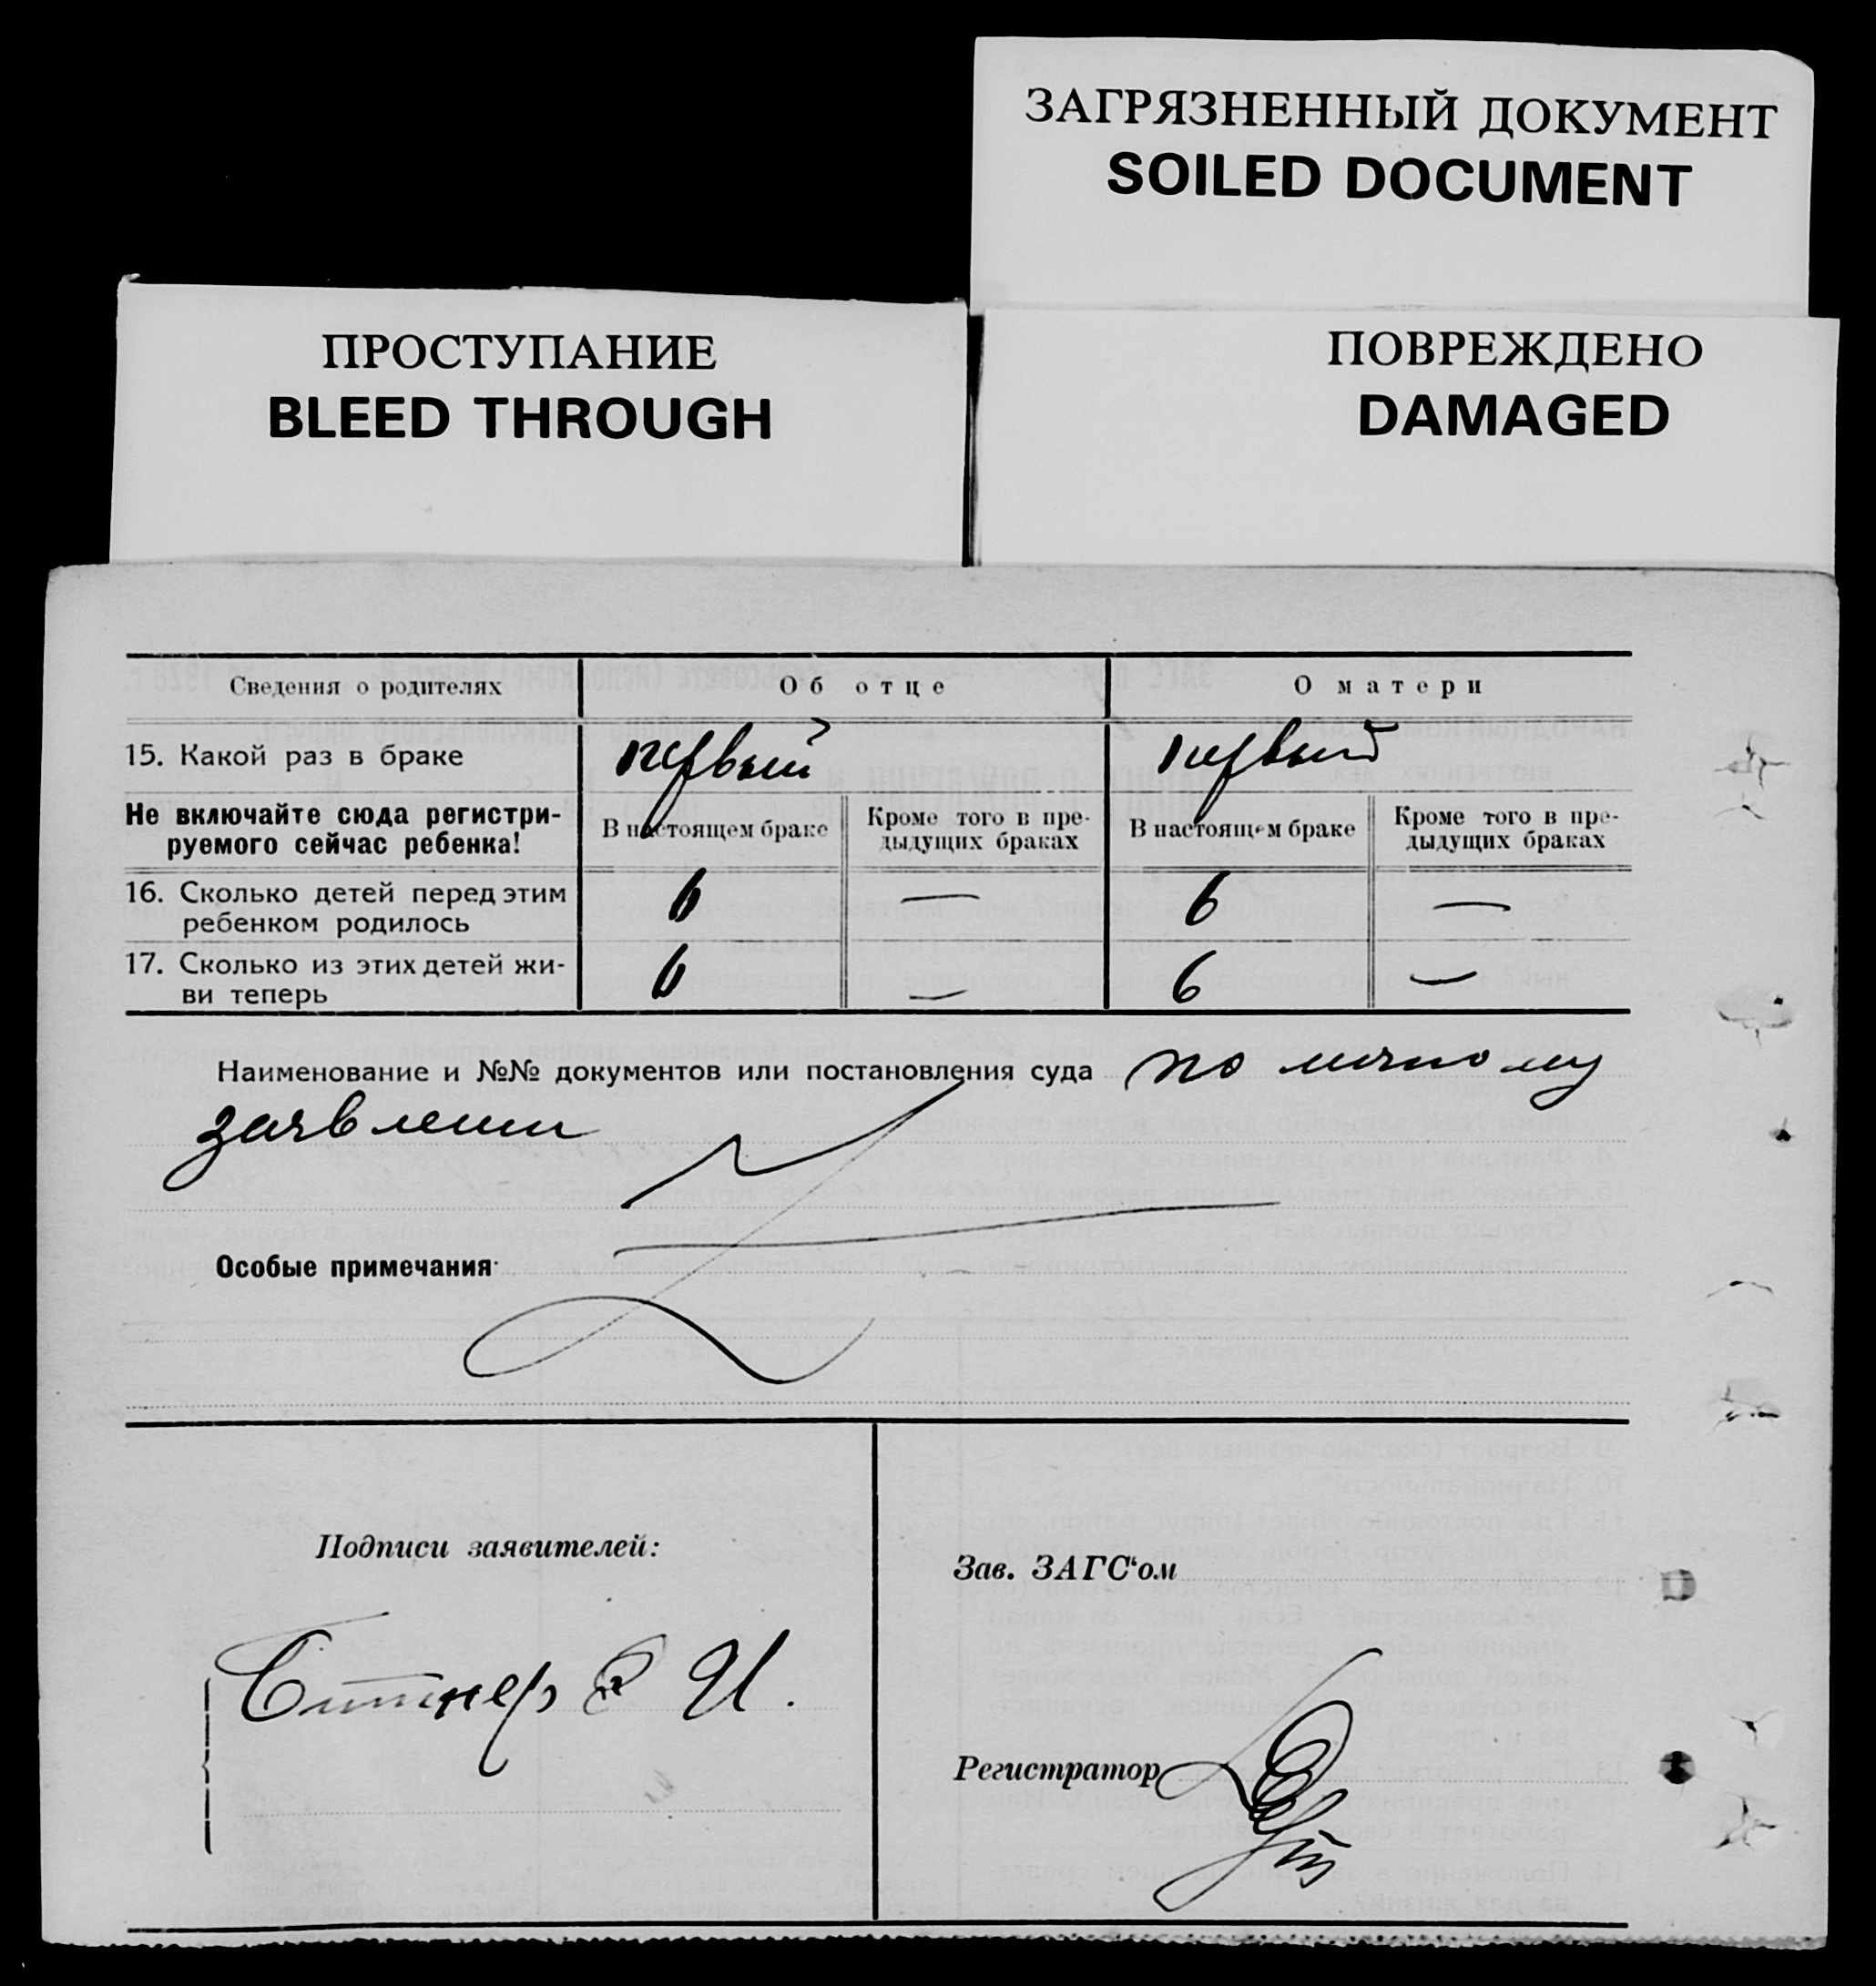 ЗАГРЯЗНЕННЫЙ ДОКУМЕНТ
SOILED DOCUMENT
ПРОСТУПАНИЕ
BLEED THROUGH
ПОВРЕЖДЕНО
DAMAGED
Сведения о родителях Об отце О матери
15. Какой раз в браке первый первый
Не включайте сюда регистри-
руемого сейчас ребенка!
В настоящем браке
Кроме того в пре-
дыдущих браках
В настоящем браке
Кроме того в пре-
дыдущих браках
16. Сколько детей перед этим
ребенком родилось 6 — 6 —
17. Сколько из этих детей жи-
ви теперь 6 — 6 —
Наименование и №№ документов или постановления суда по личному
заявлении
Особые примечания
Подписи заявителей:
Зав. ЗАГС'ом
И.
Регистратор